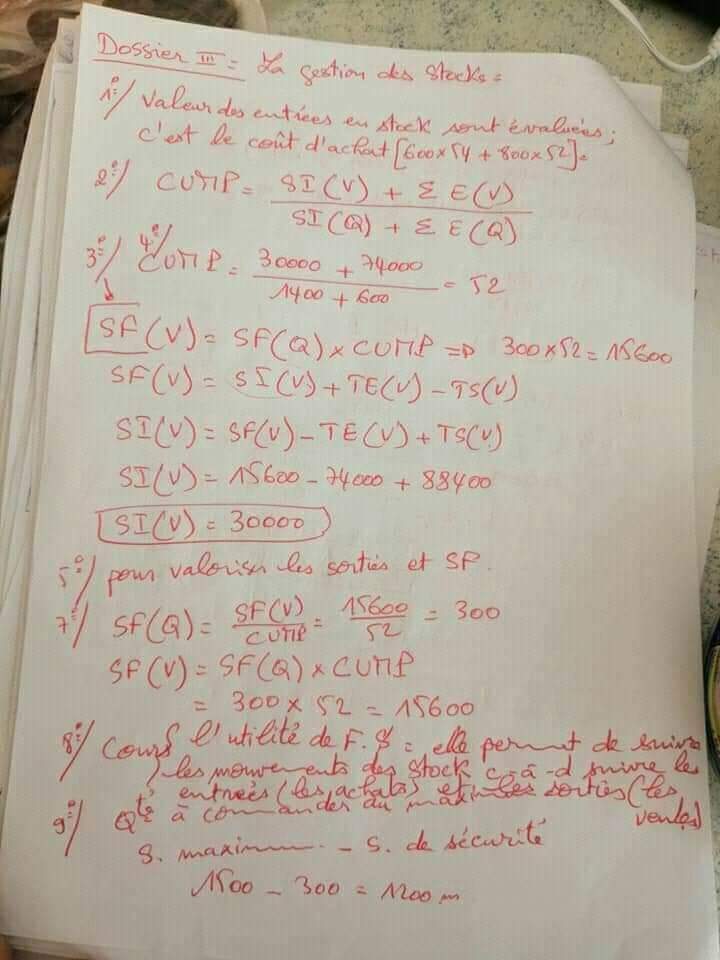 Dossier III : La gestion des stocks :
1°/ Valeur des entrées en stock sont évaluées ;
c'est le coût d'achat [600×54 + 800×52] =
2°/ CUMP = SI(V) + Σ E(V)
SI(Q) + Σ E(Q)
3°/ 4°/ CUMP = 30000 + 74000 = 52
1400 + 600
SF(V) = SF(Q) × CUMP => 300×52 = 15600
SF(V) = SI(V) + TE(V) - TS(V)
SI(V) = SF(V) - TE(V) + TS(V)
SI(V) = 15600 - 74000 + 88400
SI(V) = 30000
5°/ pour valoriser les sorties et SF.
7°/ SF(Q) = SF(V) = 15600 = 300
CUMP 52
SF(V) = SF(Q) × CUMP
= 300 × 52 = 15600
8°/ Cours l'utilité de F.S : elle permet de suivre
les mouvements des stock c-à-d suivre les
entrées (les achats) et les sorties (les
ventes)
9°/ Qté à commander au maxi
S. maximum - S. de sécurité
1500 - 300 = 1200 m